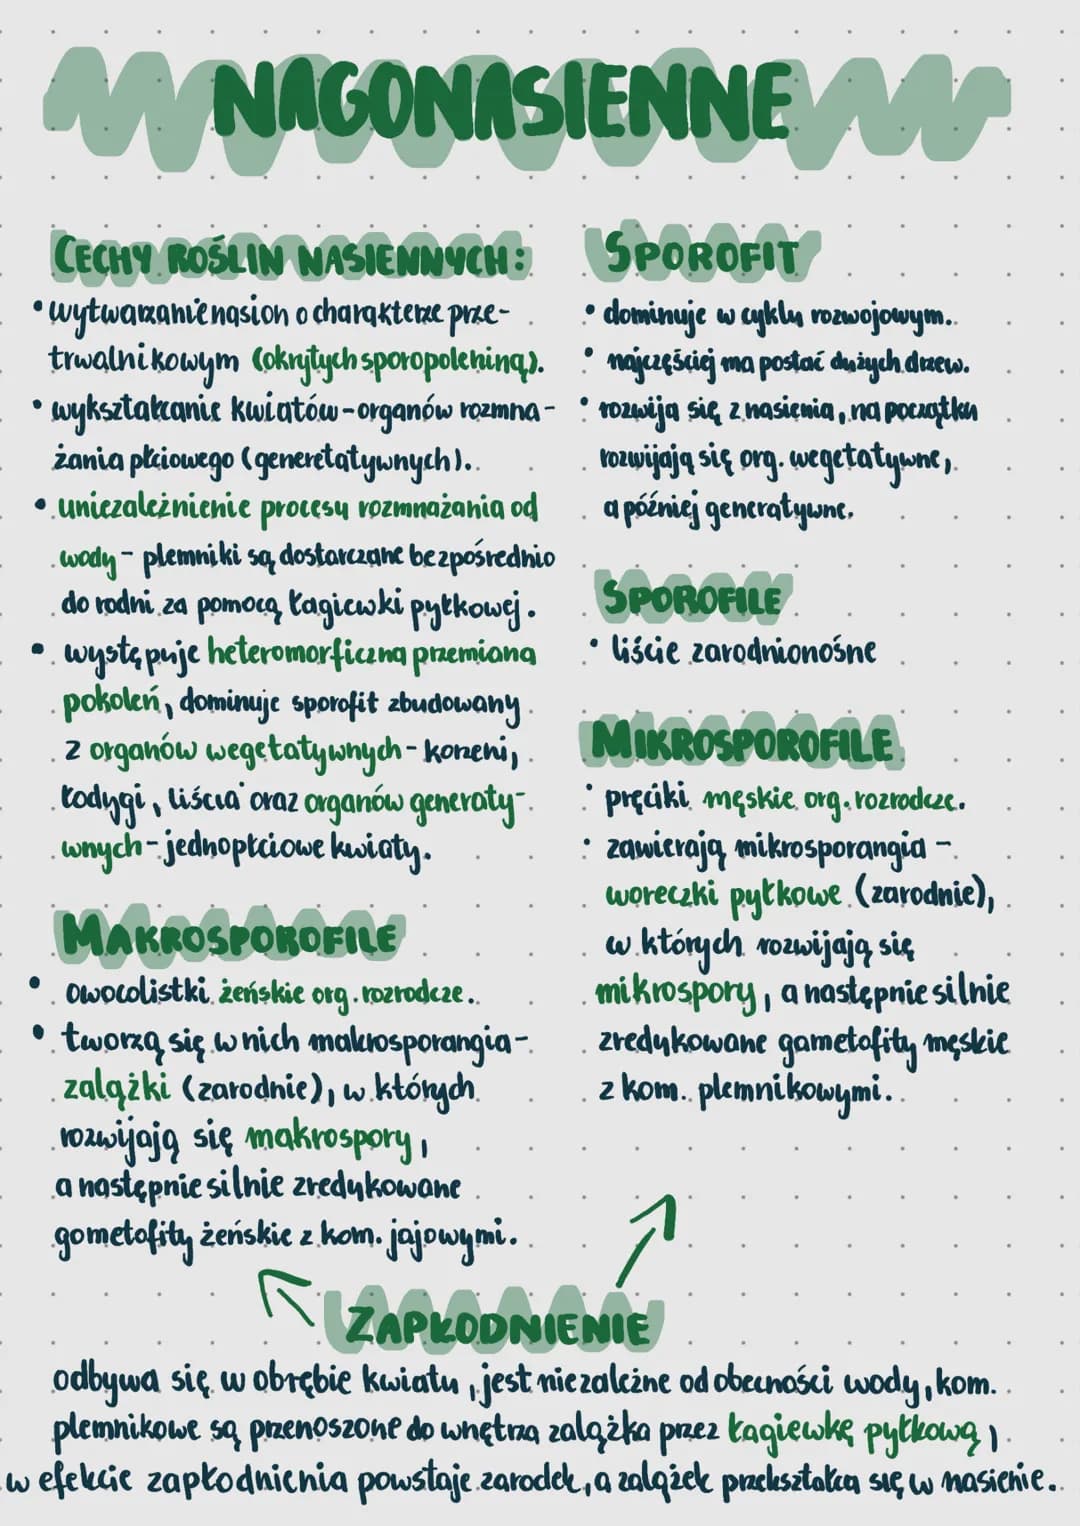 NAGONASIENNE
CECHY ROŚLIN NASIENNYCH:
• wytwarzanie nasion o charakterze prze-
trwalnikowym (okrytych sporopoleniną).
• wykształcanie kwiatów - organów rozmna-
żania płciowego (generetatywnych).
• uniezależnienie procesu rozmnażania od
wody - plemniki są dostarczane bezpośrednio
do rodni za pomocą łagiewki pyłkowej.
• występuje heteromorficzna przemiana
pokoleń, dominuje sporofit zbudowany
z organów wegetatywnych - korzeni,
łodygi, liścia oraz organów generaty-
wnych - jednopłciowe kwiaty.
MAKROSPOROFILE
• owocolistki żeńskie org. rozrodcze.
• tworzą się w nich makrosporangia -
zalążki (zarodnie), w których
rozwijają się makrospory,
a następnie silnie zredukowane
gometofity żeńskie z kom. jajowymi.
SPOROFIT
• dominuje w cyklu rozwojowym.
• najczęściej ma postać dużych drzew.
• rozwija się z nasienia, na początku
rozwijają się org. wegetatywne,
a później generatywne.
SPOROFILE
• liście zarodnionośne
MIKROSPOROFILE
• pręciki męskie org. rozrodcze.
• zawierają mikrosporangia -
woreczki pyłkowe (zarodnie),
w których rozwijają się
mikrospory, a następnie silnie
zredukowane gametofity męskie
z kom. plemnikowymi.
ZAPŁODNIENIE
odbywa się w obrębie kwiatu, jest niezależne od obecności wody, kom.
plemnikowe są przenoszone do wnętrza zalążka przez łagiewkę pyłkową,
w efekcie zapłodnienia powstaje zarodek, a zalążek przekształca się w nasienie.